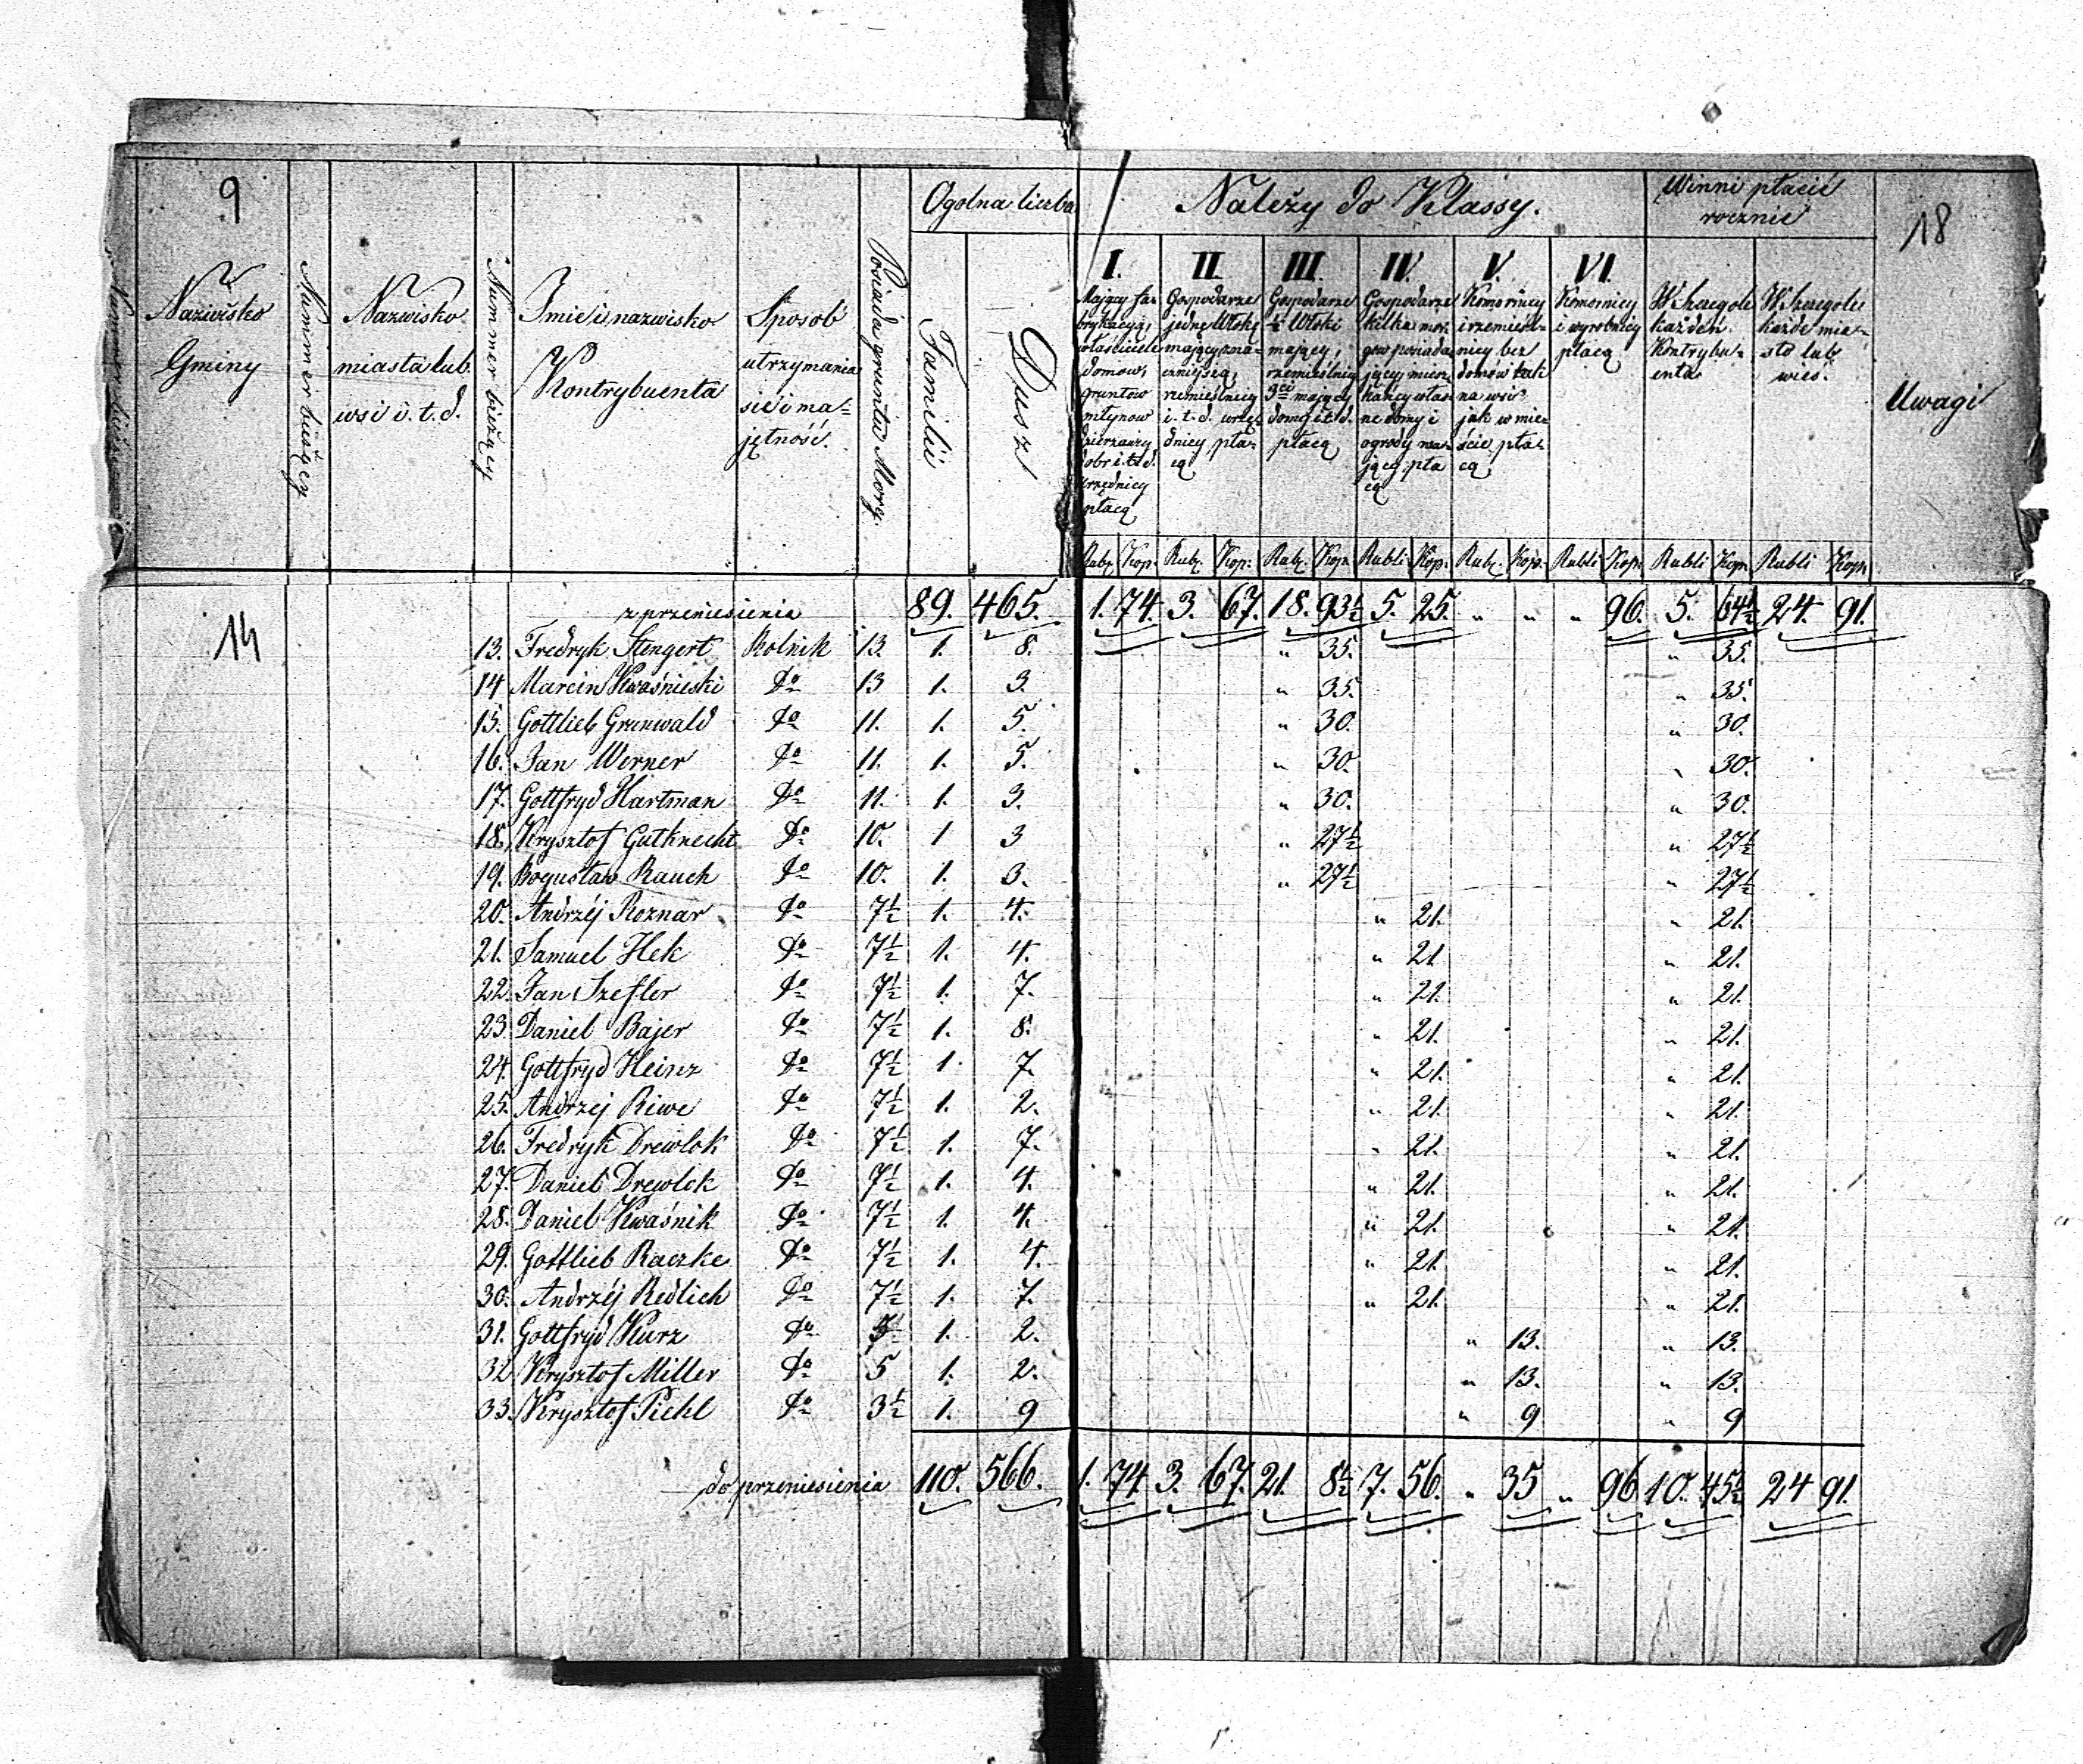 9
18
14
Nazwisko Gminy
Nummer bieżący
Nazwisko miasta lub wsi i. t. d.
Nummer bieżący
Imie i nazwisko Kontrybuenta
Sposob utrzymania się i majętność.
Posiada gruntu Morg.
Ogolna liczba
Familii
Dusz
Należy do Klassy.
I.
Mający fabrykacyą, właściciele domow, gruntow młynow dzierzawcy dobr i. t. d. urzędnicy płacą
II.
Gospodarze jednę Włokę mający znaczniejsią, rzemieślnicy i. t. d. urzędnicy, płacą
III.
Gospodarze ½ Włoki mający, rzemieślnicy mający domy i t. d. płacą
IV.
Gospodarze kilka mor. gow posiadający mieszkańcy własne domy i ogrody mający płacą
V.
Komornicy i rzemieślnicy bez domów tak na wsi jak w mieście płacą
VI.
Komornicy i wyrobnicy płacą
Winni płacić rocznie
W Szczegole każden Kontrybuenta
W Szczegole każde miasto lub wieś.
Uwagi
Rubl. Kop. Rubl. Kop. Rubl. Kop. Rubli Kop. Rubl. Kop. Rubli Kop. Rubli Kop. Rubli Kop.
z przeniesienia 89. 465. 1. 74. 3. 67. 18. 93½ 5. 25. " " " 96. 5. 64½ 24. 91.
13. Fredryk Stengert Rolnik 13. 1. 8. " 35. " 35.
14 Marcin Kwaśnieski do 13 1. 3. " 35. " 35.
15. Gottlieb Grunwald do 11. 1. 5. " 30. " 30.
16. Jan Werner do 11. 1. 5. " 30. " 30.
17. Gottfryd Hartman do 11. 1. 3. " 30. " 30.
18. Krysztof Gutknecht do 10. 1 3 " 27½ " 27½
19. Bogusław Rauch do 10. 1. 3. " 27½ " 27½
20. Andrzéj Roznar do 7½ 1. 4. " 21. " 21.
21. Samuel Hek do 7½ 1. 4. " 21 " 21.
22. Jan Szefler do 7½ 1. 7. " 21. " 21.
23. Daniel Bajer do 7½ 1. 8. " 21. " 21.
24. Gottfryd Heinz do 7½ 1. 7. " 21. " 21.
25. Andrzej Riwe do 7½ 1. 2. " 21. " 21.
26. Fredryk Drewlok do 7½ 1. 7. " 21. " 21.
27. Daniel Drewlok do 7½ 1. 4. " 21. " 21.
28. Daniel Kwaśnik do 7½ 1. 4. " 21. " 21.
29. Gottlieb Raczke do 7½ 1. 4. " 21. " 21.
30. Andrzéj Redlich do 7½ 1. 7. " 21. " 21.
31. Gottfryd Kurz do 1. 2. " 13. " 13.
32 Krysztof Miller do 5 1. 2. " 13. " 13.
33. Krysztof Piehl do 3½ 1. 9 " 9 " 9
do przeniesienia 110. 566. 1. 74. 3. 67. 21. 8½ 7. 56. " 35 " 96 10. 45½ 24 91.